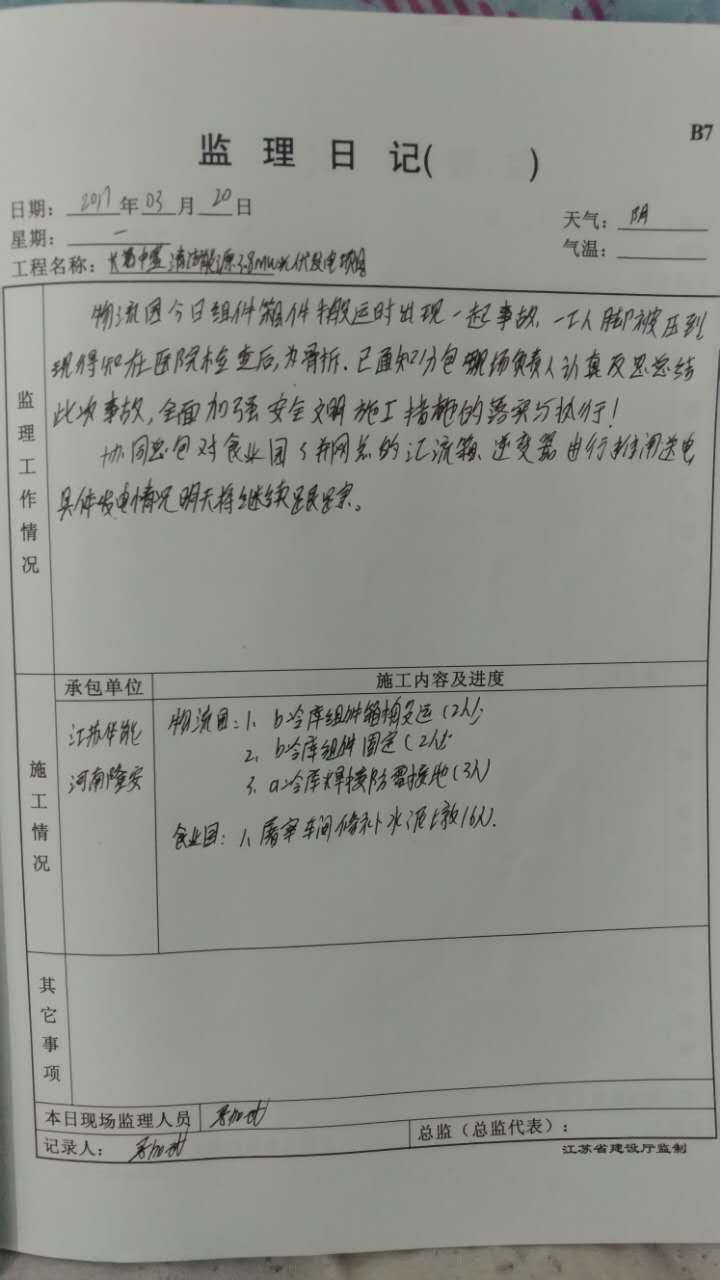 B7
监 理 日 记( )
日期: 2017 年 03 月 20 日
天气: 阴
星期: 一
气温:
工程名称: 清洁能源3.8MW光伏发电项目
监理工作情况
物流园今日组件箱件搬运时出现一起事故,一工人脚被压到
现得知在医院检查后,为骨折.已通知分包现场负责人认真反思总结
此次事故,全面加强安全文明施工措施的落实与执行!
协同总包对食业园 并网总的汇流箱、逆变器进行推闸送电
具体发电情况明天将继续跟踪。
施工情况
承包单位
施工内容及进度
江苏华能
河南隆安
物流园:1、b冷库组件箱搬运(2人);
2、b冷库组件固定(2人);
3、a冷库焊接防雷接地(3人)
食业园:1、屠宰车间修补水泥墩16人.
其它事项
本日现场监理人员
记录人:
总监(总监代表):
江苏省建设厅监制